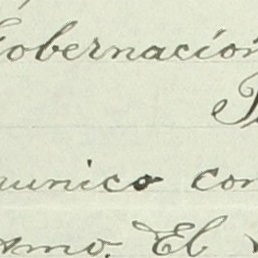 Gobernación
unico con
smo. El